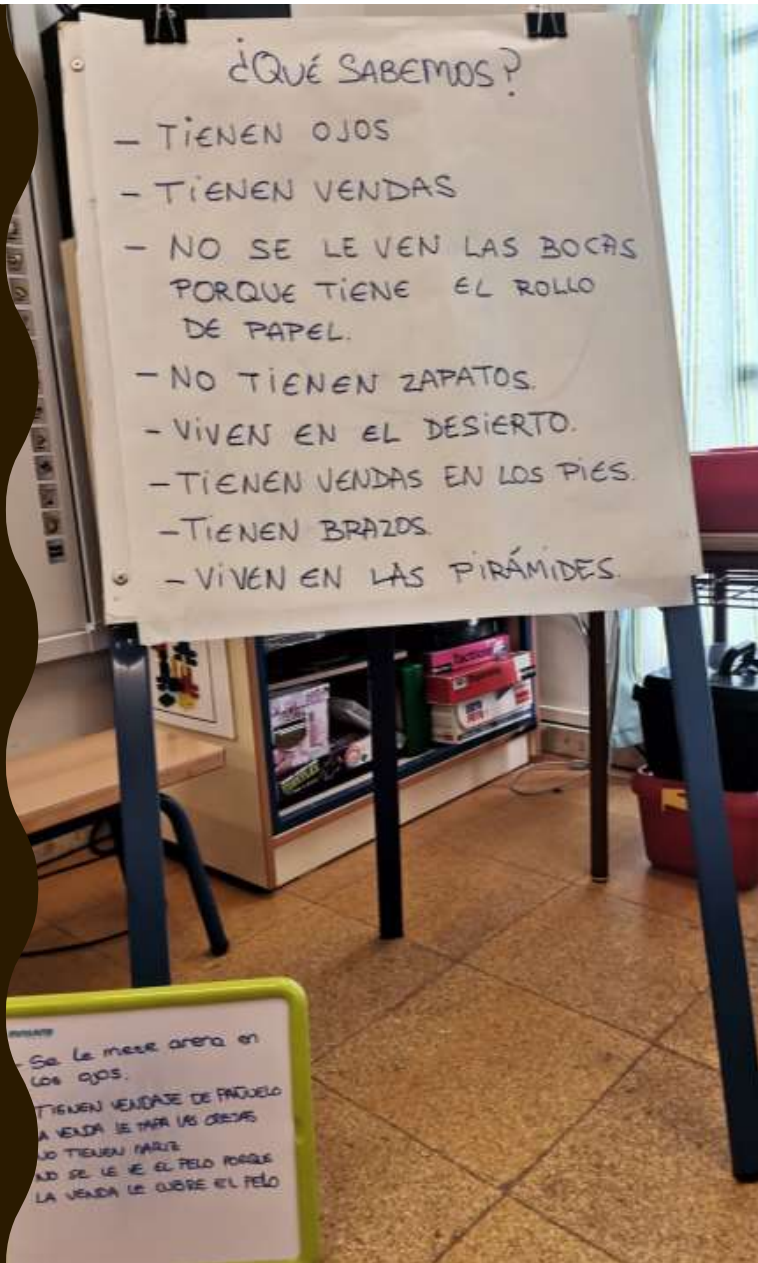 ¿QUÉ SABEMOS?
- TIENEN OJOS
- TIENEN VENDAS
- NO SE LE VEN LAS BOCAS
PORQUE TIENE EL ROLLO
DE PAPEL.
- NO TIENEN ZAPATOS.
- VIVEN EN EL DESIERTO.
- TIENEN VENDAS EN LOS PIES.
- TIENEN BRAZOS.
- VIVEN EN LAS PIRÁMIDES.
- Se le mete arena en
los ojos.
TIENEN VENDAJE DE PAÑUELO
A VENDA LE TAPA LAS OREJAS
NO TIENEN NARIZ
NO SE LE VE EL PELO PORQUE
LA VENDA LE CUBRE EL PELO